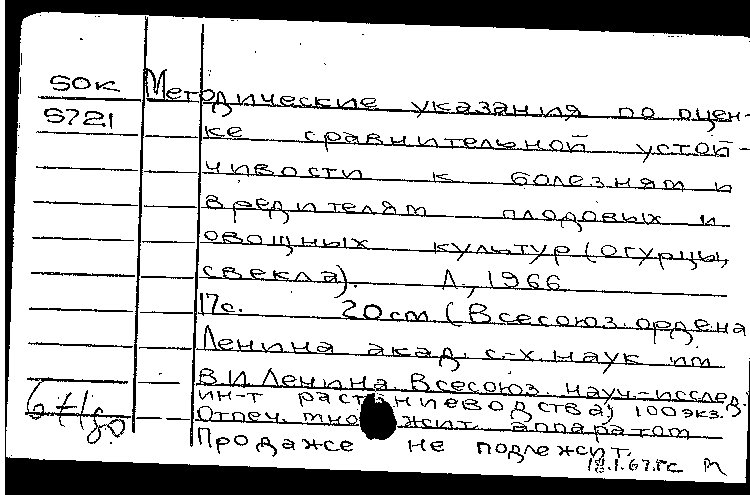 SOK Методические указания по оцен-
S721 ке сравнительной устой-
чивости к болезням и
вредителям плодовых и
овощных культур (огурцы,
свекла). Л., 1966
17с. 20см (Всесоюз. ордена
Ленина акад. с.-х. наук им
В.И Ленина. Всесоюз. науч.-исслед.
ин-т растениеводства) 100экз.
Отпеч. множит. аппаратом
Продаже не подлежит.